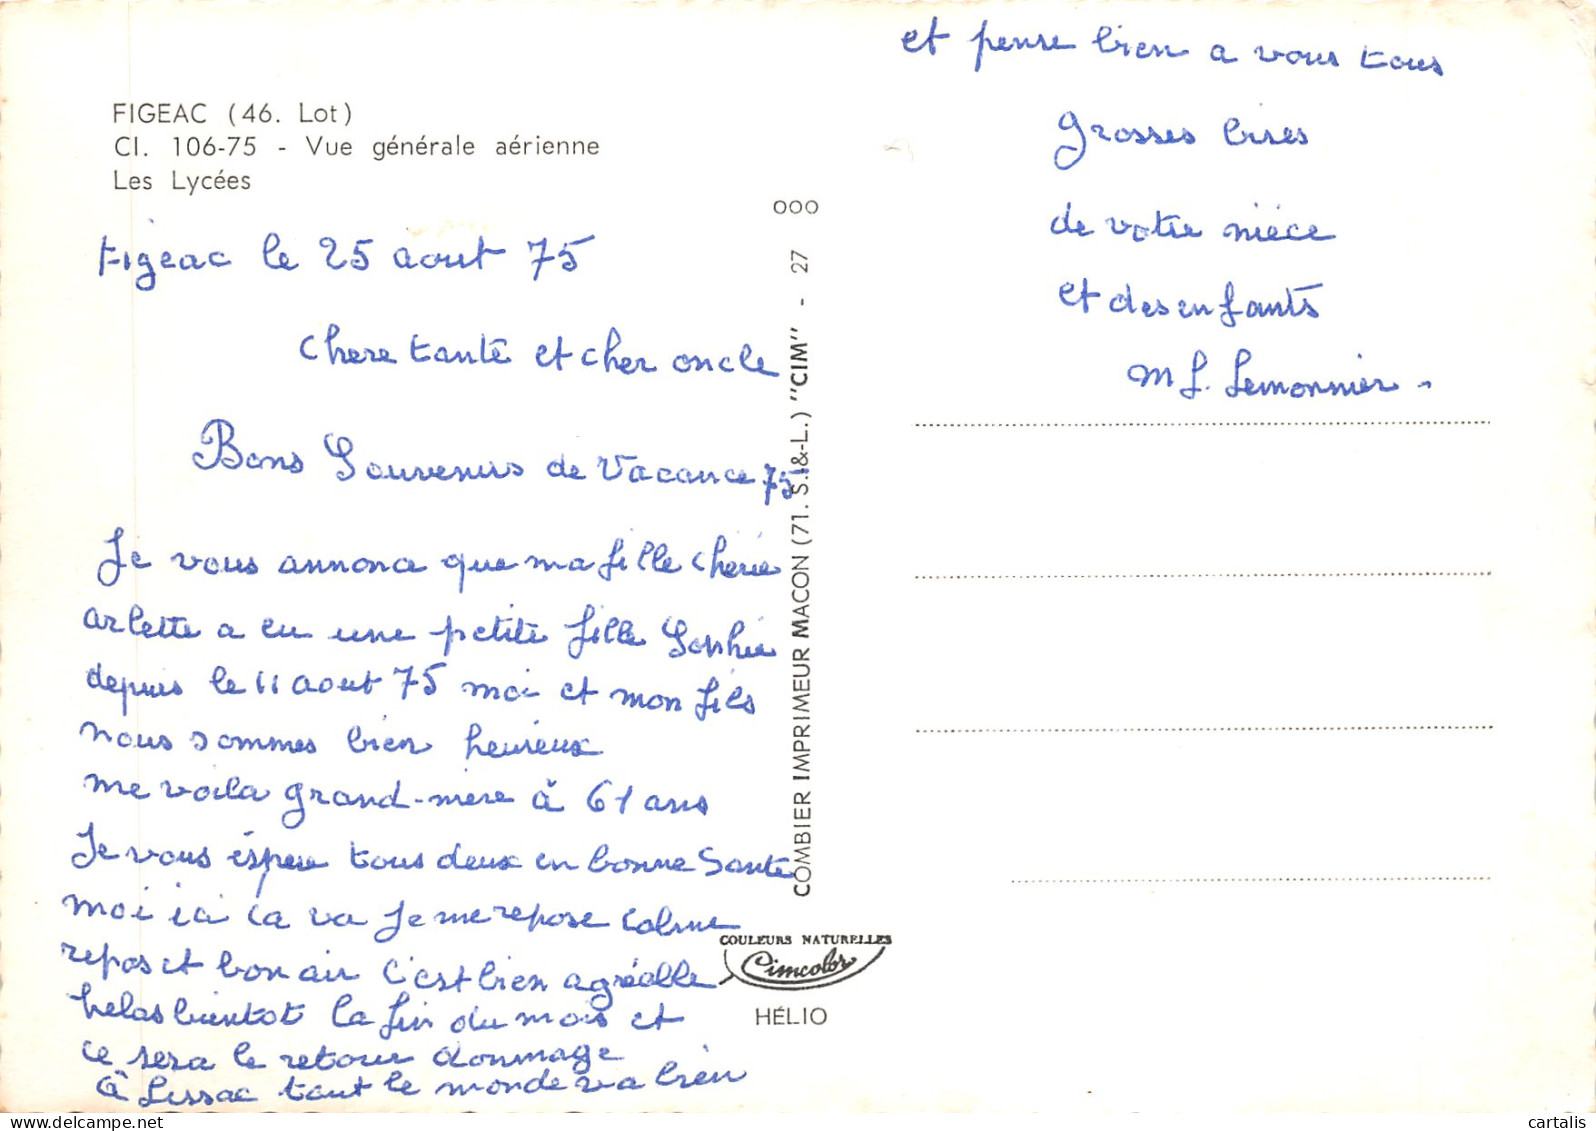 FIGEAC (46. Lot)
CI. 106-75 - Vue générale aérienne
Les Lycées
Figeac le 25 aout 75
Chere tante et cher oncle
Bons Souvenirs de Vacance 75
Je vous annonce que ma fille cherie
arlette a eu une petite fille Sophie
depuis le 11 aout 75 moi et mon fils
nous sommes bien heureux
me voila grand-mère à 61 ans
Je vous éspere tous deux en bonne Santé
moi ici ca va Je me repose Calme
repos et bon air C'est bien agréable
helas bientot la fin du mois et
ce sera le retour dommage
à Lissac tout le monde va bien
et pense bien a vous tous
grosses bises
de votre nièce
et des enfants
M L. Lemonnier -
OOO
COMBIER IMPRIMEUR MACON (71. S.-&-L.) "CIM" - 27
COULEURS NATURELLES
Cimcolor
HÉLIO
delcampe.net
cartalis